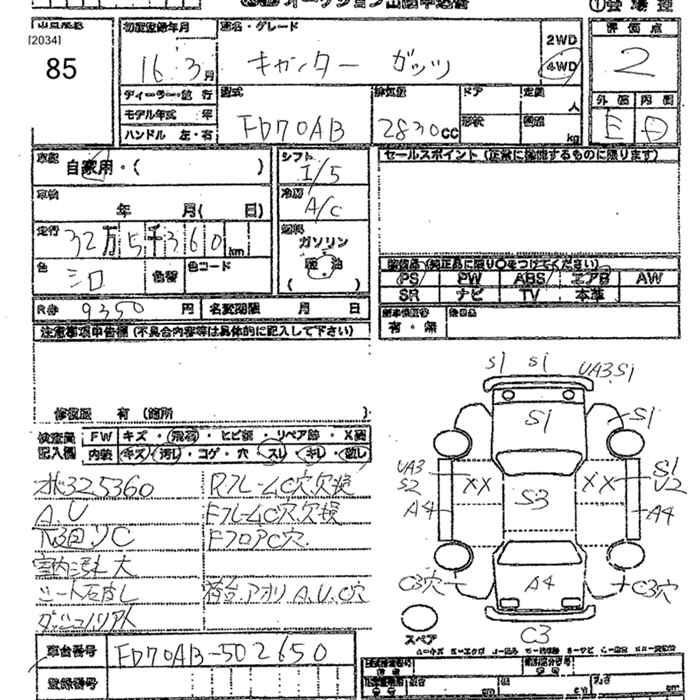 [2034]
85
初度登録年月
16年3月
車名・グレード
キャンター ガッツ
2WD
4WD
評価点
2
外装 内装
E D
ディーラー・並行
モデル年式 年
ハンドル 左・右
型式
FD70AB
排気量
2830cc
ドア
形状
定員
人
積載
kg
車歴
自家用・( )
車検
年 月( 日)
走行
32万5千360km
色
シロ
色替
色コード
R券 9350円
名変期限 月 日
シフト
I/5
冷房
A/C
燃料
ガソリン
軽油
( )
セールスポイント(正常に機能するものに限ります)
装備品(純正品に限り○をつけてください)
PS PW ABS エアB AW
SR ナビ TV 本革
新車保証書
有・無
後日品
注意事項申告欄(不具合内容等は具体的に記入して下さい)
修復歴 有(箇所
検査員記入欄
FW キズ・飛石・ヒビ割・リペア跡・X要
内装 キズ・汚レ・コゲ・穴・スレ・キレ・欠レ
ホ325360
A.U
下回りC
室内汚レ大
シート破レ
Rフレーム C穴欠損
Fフレーム C穴欠損
FフロアC穴
荷台.アオリ A.U.C穴
S1 S1 UA3 S1
S1 S1
UA3 S2
XX S3 XX
S1 U2
A4 A4
C3穴 A4 C3穴
C3
スペア
車台番号 FD70AB-502650
登録番号